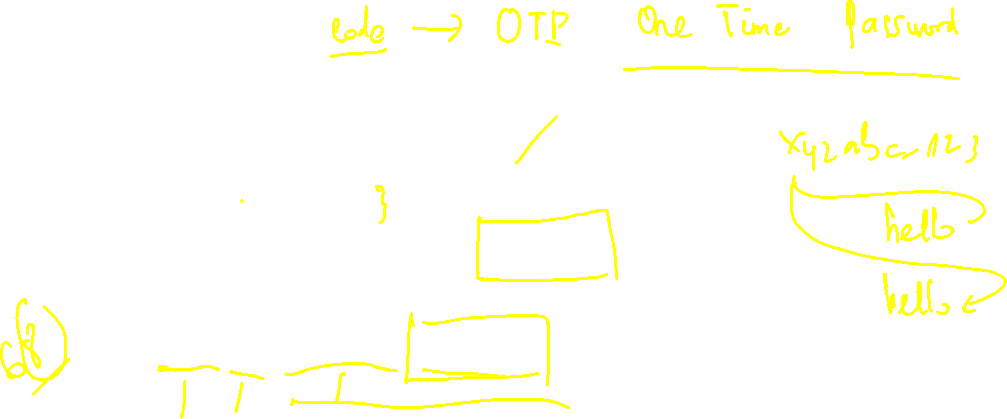 code → OTP One Time Password
xyzabc123
hello
hello